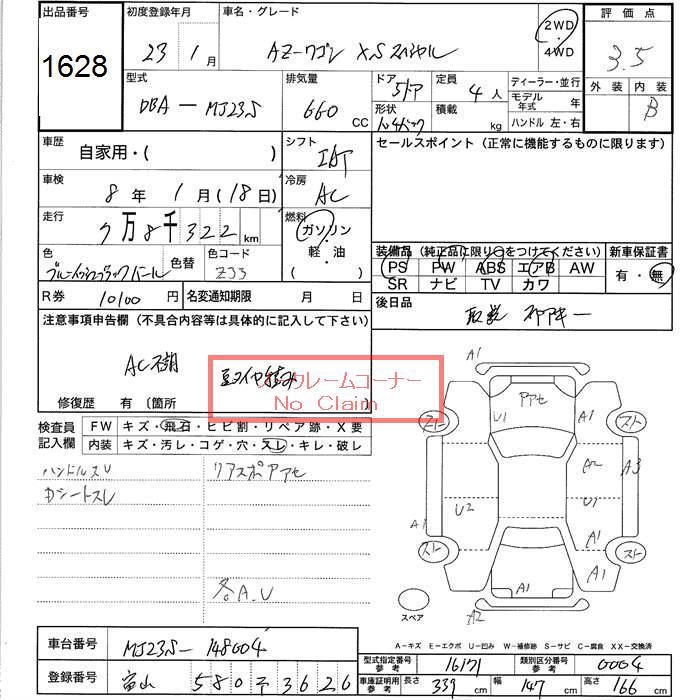 出品番号
1628
初度登録年月
23 1月
車名・グレード
AZ-ワゴン XSスペシャル
2WD
・
4WD
評価点
3.5
外装 内装
B
型式
DBA-MJ23S
排気量
660 CC
ドア
5ドア
定員
4人
形状
積載
kg
ディーラー・並行
モデル年式 年
ハンドル 左・右
車歴
自家用・( )
シフト
IAT
セールスポイント (正常に機能するものに限ります)
車検
8年 1月(18日)
冷房
AC
走行
7万8千322km
燃料
ガソリン
・
軽・油
( )
色
ブルーイッシュブラックパール
色替
色コード
ZJ3
装備品 (純正品に限り○をつけてください)
PS PW ABS エアB AW
SR ナビ TV カワ
新車保証書
有・無
R券 10100円
名変通知期限 月 日
後日品
取説
注意事項申告欄 (不具合内容等は具体的に記入して下さい)
AC不調
ノークレームコーナー
No Claim
修復歴 有 (箇所
検査員
記入欄
FW キズ・飛石・ヒビ割・リペア跡・X要
内装 キズ・汚レ・コゲ・穴・スレ・キレ・破レ
ハンドルスレ
Dシートスレ
リアスポアアセ
各A.U
A1
アアセ
U1
A1
スト
スト
A2
A3
U2
U1
A1
A1
スト
スト
A1
A1
スペア
A2
A-キズ E-エクボ U-凹み W-補修跡 S-サビ C-腐食 XX-交換済
車台番号 MJ23S-148004
型式指定番号 参考 16171
類別区分番号 参考 0004
登録番号 富山 580 ヲ 3626
車庫証明用 参考 長さ 339cm 幅 147cm 高さ 166cm